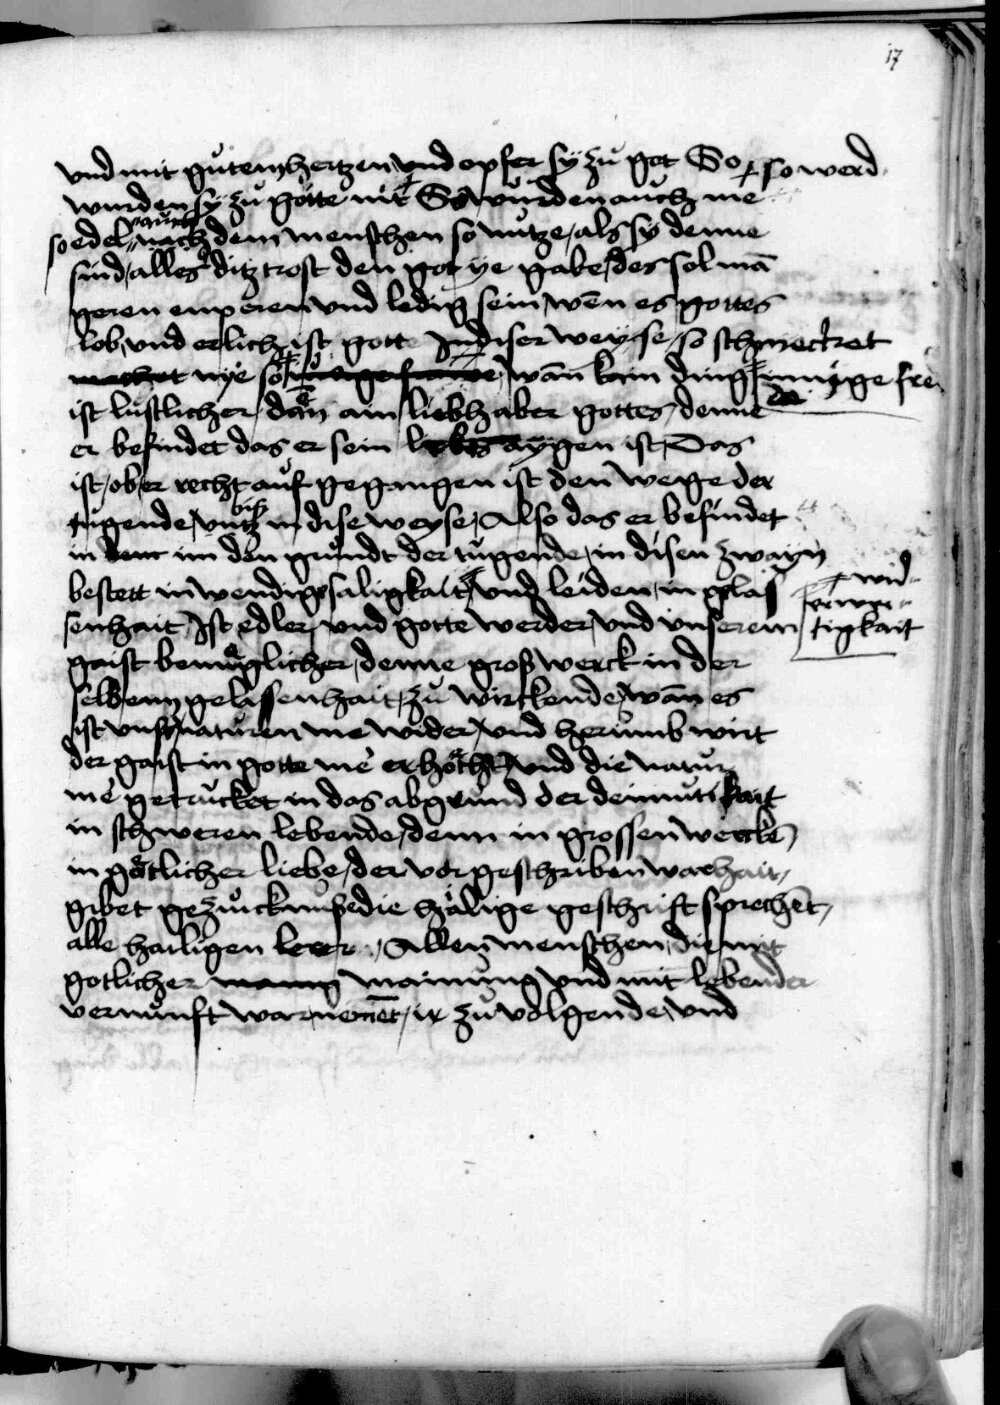 17
vnd mit gůtem hertzen vnd opfer sy zů got So so werd
wurden sy zů gotte nit So wurden auch me
so edel auch nach dem menschen so nutze / als sy denne
sind / alles ditz trost den got ye gabe / des sol mā
geren enperen vnd ledig sein / wen es gottes
lob vnd erlich ist gott In diser weyse / so schmecket
nye so wann kain ding innige fre
ist lustlicher / dann aim liebhaber gottes / denne da
er befindet das er sein liebes aygen ist / Das
ist / ob er recht auf gegangen ist den wege der
tugende / vntz biß in dise weyse / Also das er befindet
in im den grundt der tugende / in disen zwayn
bestett in wendige saligkait / vnd leiden / in gelas wid
senhait / Ist edler / vnd gotte werder / vnd vnserem tigkait
gaist benuglicher / denne groß werck in der
selben gelassenhait / zů wirckende / wann es
ist vnser naturen me wider / vnd herumb wirt
der gaist in gotte me erhöcht / vnd die natur
me getrucket in das abgrund der demutikait
in schweren lebende / denn in grossen wercke
in götlicher liebe / der vor geschriben warhait /
gibet gezucknuße die hailige geschrift sprechet /
alle hailigen lerer / Allen menschen / die mit
gotlicher mainung vnd mit lebender
vernunft war nement / ir zů volgende / vnd